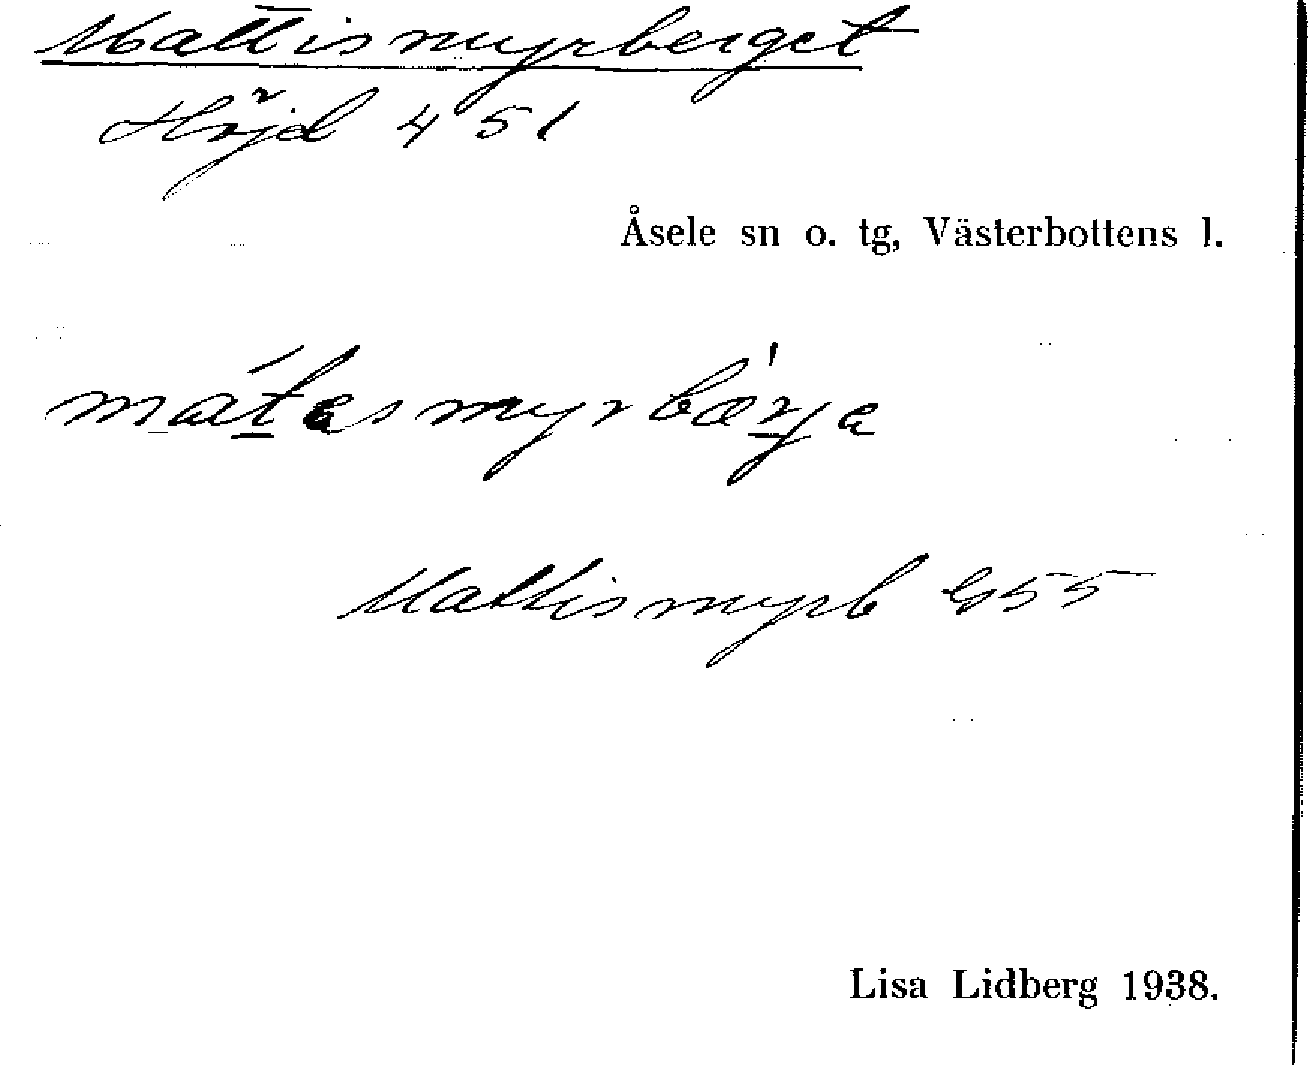 Mattismyrberget
Höjd 451
Åsele sn o. tg, Västerbottens l.
mátesmyrbær̍ja
Mattismyrb G55
Lisa Lidberg 1938.